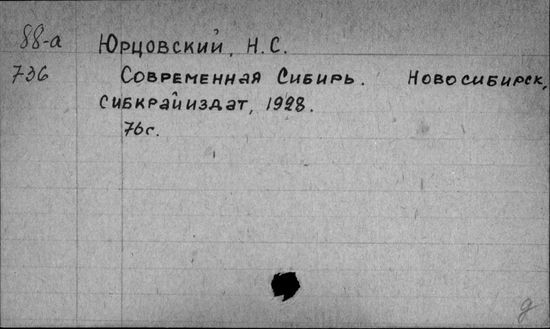 88-а Юрцовский, Н.С.
736 Современная Сибирь. Новосибирск,
Сибкрайиздат, 1928.
76 с.